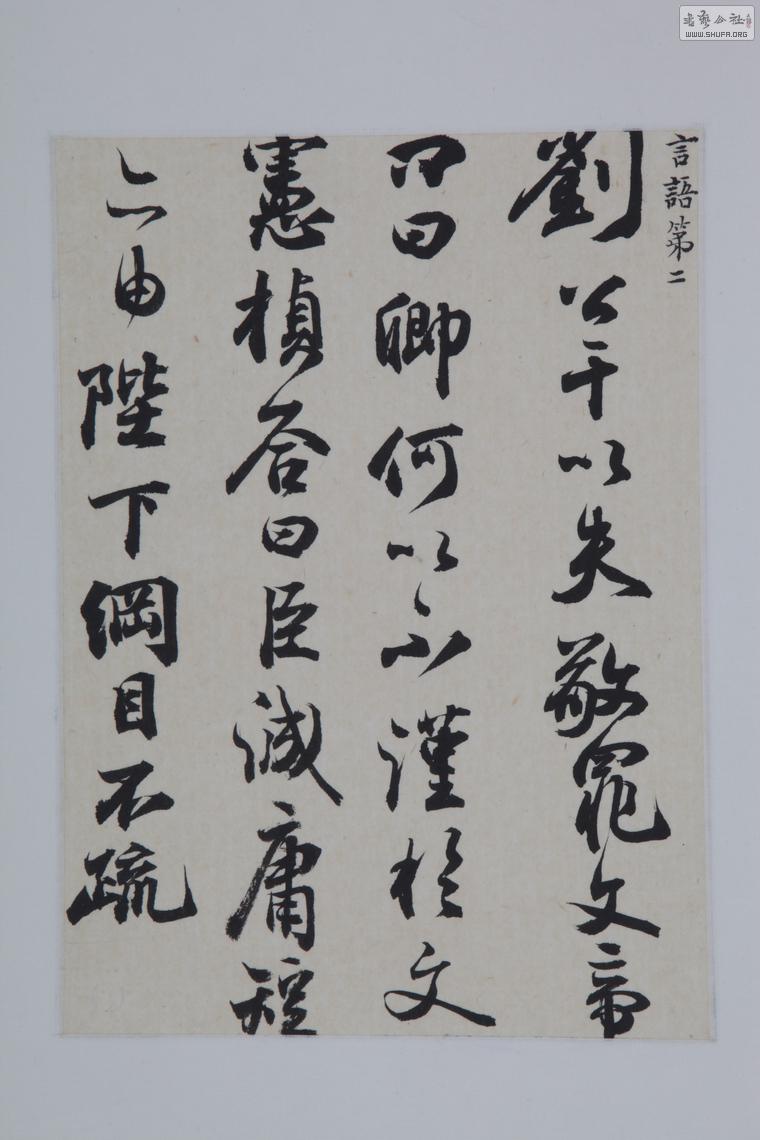 言語第二
劉公干以失敬罪文帝
問曰卿何以不謹於文
憲楨答曰臣誠庸短
亦由陛下綱目不疏
書藝公社
WWW.SHUFA.ORG